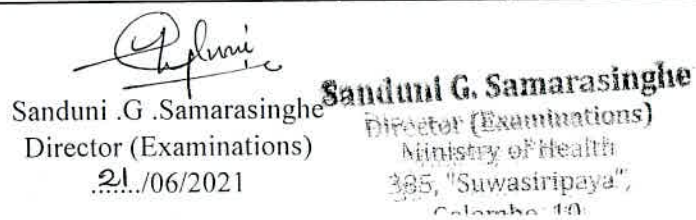 Sanduni .G .Samarasinghe
Director (Examinations)
.21../06/2021
Sanduni G. Samarasinghe
Director (Examinations)
Ministry of Health
385, "Suwasiripaya",
Colombo 10